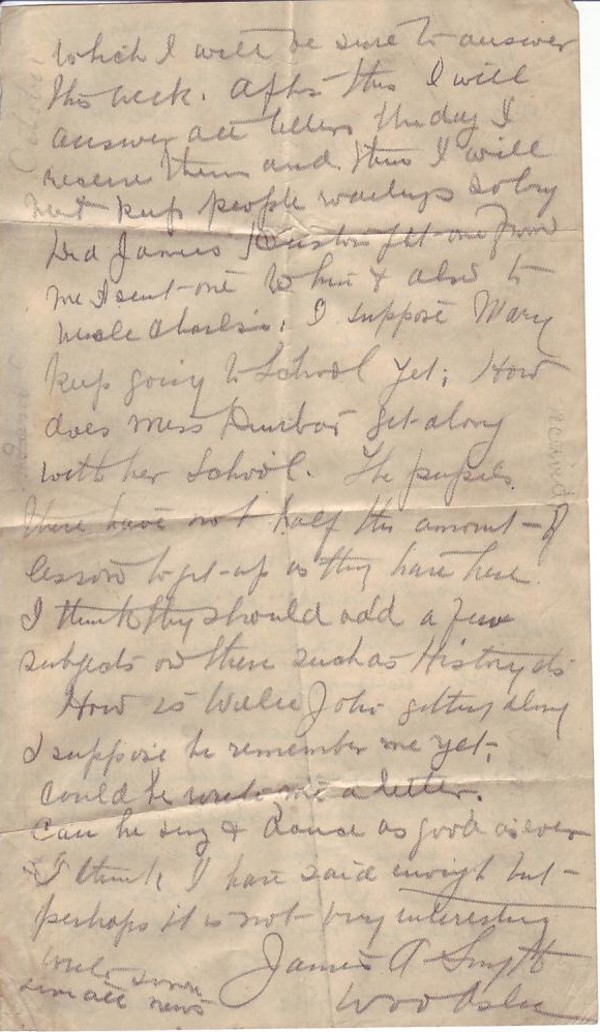 which I will be sure to answer
this week. After this I will
answer all letters the day I
receive them and then I will
not keep people waiting so long
Did James Huston get one from
me I sent one to him & also to
Uncle Charlie's. I suppose Mary
keep going to School yet; How
does Miss Dunbar get along
with her School. The pupils
there have not half the amount of
lessons to get up as they have here.
I think they should add a few
subjects on there such as History
How is Willie John getting along
I suppose he remember me yet;
Could he write me a letter.
Can he sing & dance as good as ever
I think I have said enough but
perhaps it is not very interesting
James A Smyth
write soon
all news